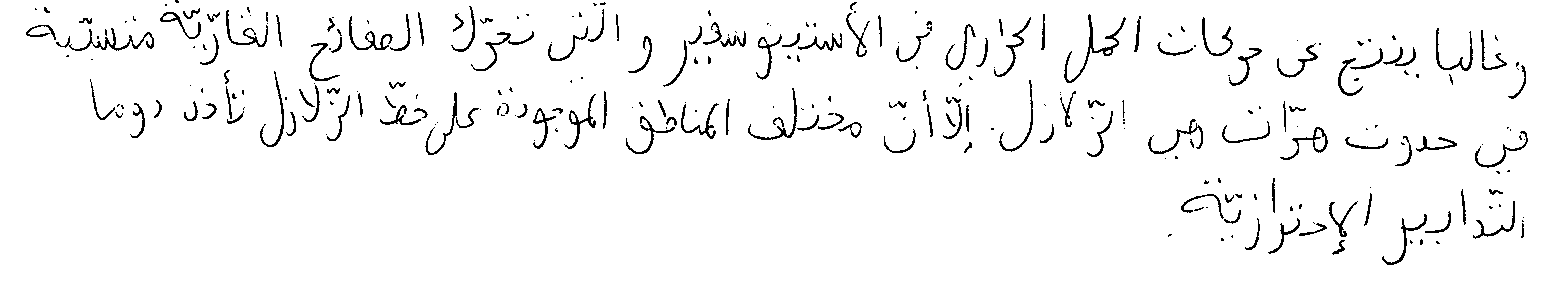 وغالبا ينتج عن حركات الحمل الحراري في الأستينوسفير و الّتي تحرّك الصفائح القارّيّة متسبّبة
في حدوث هزّات هي الزّلازل. إلّا أنّ مختلف المناطق الموجودة على خطّ الزّلازل تأخذ دوما
التّدابير الإحترازيّة.